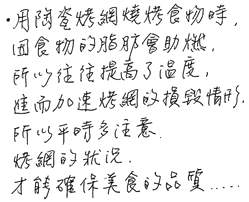 ·用陶瓷烤網燒烤食物時,
因食物的脂肪會助燃,
所以往往提高了溫度,
進而加速烤網的損毀情形,
所以平時多注意
烤網的狀況.
才能確保美食的品質.....